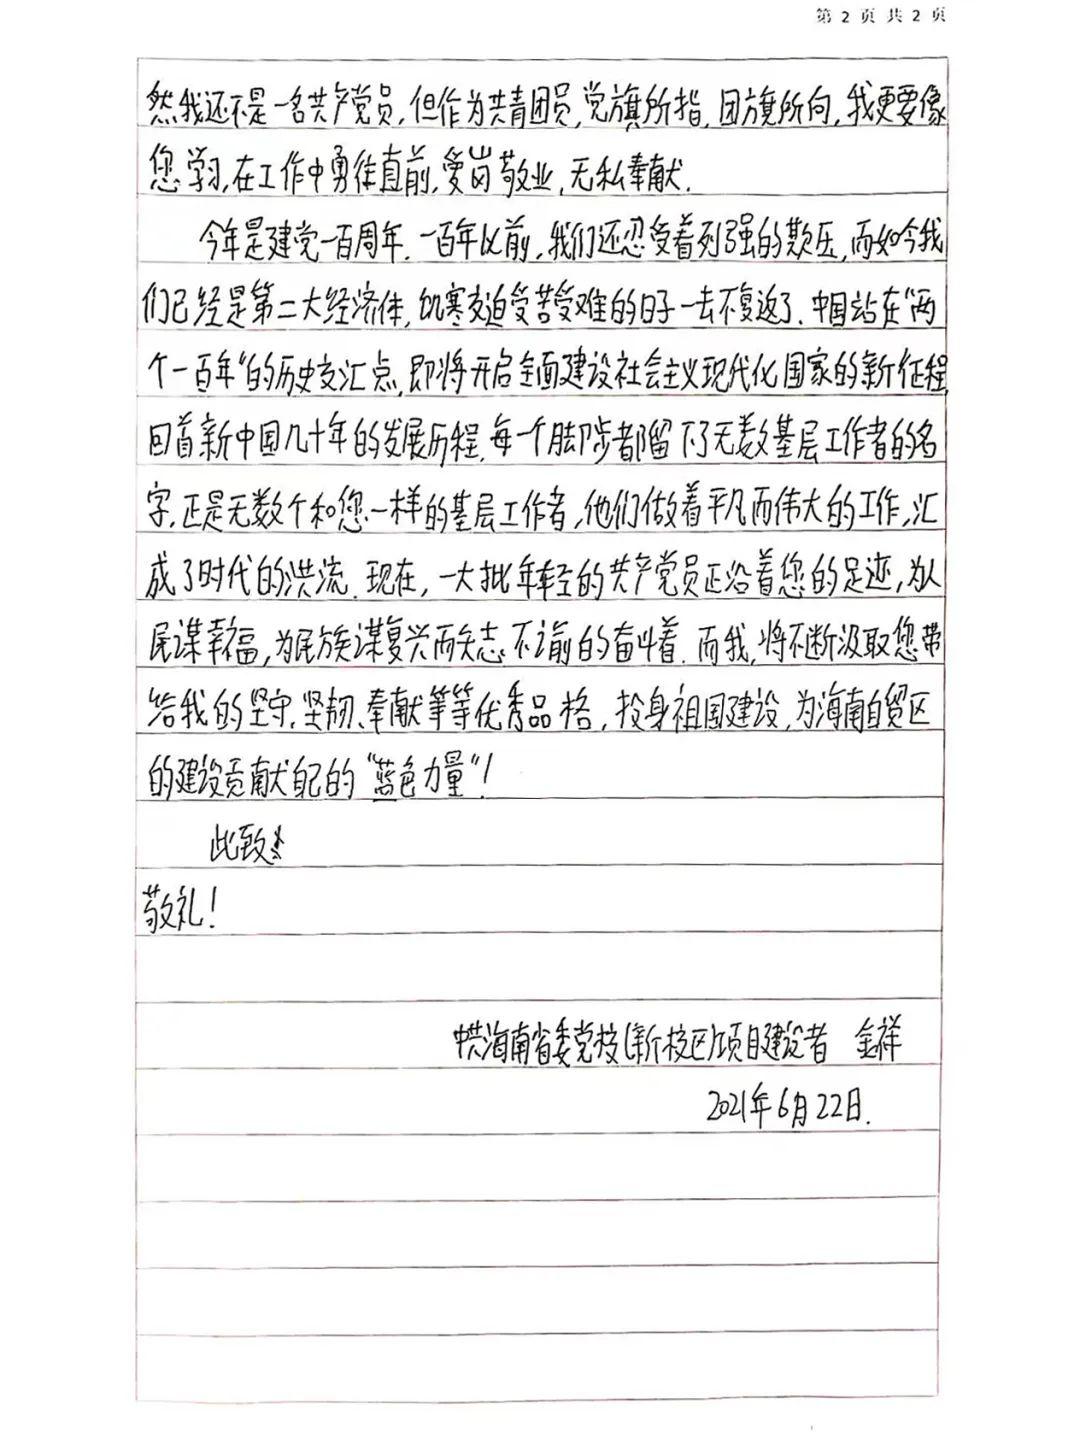 第 2 页 共 2 页
然我还不是一名共产党员,但作为共青团员,党旗所指,团旗所向,我更要像
您学习,在工作中勇往直前,爱岗敬业,无私奉献.
今年是建党一百周年.一百年以前,我们还忍受着列强的欺压,而如今我
们已经是第二大经济体,饥寒交迫受苦受难的日子一去不复返了.中国站在“两
个一百年”的历史交汇点,即将开启全面建设社会主义现代化国家的新征程,
回首新中国几十年的发展历程,每一个脚步都留下了无数基层工作者的名
字,正是无数个和您一样的基层工作者,他们做着平凡而伟大的工作,汇
成了时代的洪流.现在,一大批年轻的共产党员正沿着您的足迹,为人
民谋幸福,为民族谋复兴而矢志不渝的奋斗着.而我,将不断汲取您带
给我的坚守、坚韧、奉献等等优秀品格,投身祖国建设,为海南自贸区
的建设贡献自己的“蓝色力量”!
此致
敬礼!
中共海南省委党校(新校区)项目建设者 金祥
2021年6月22日.